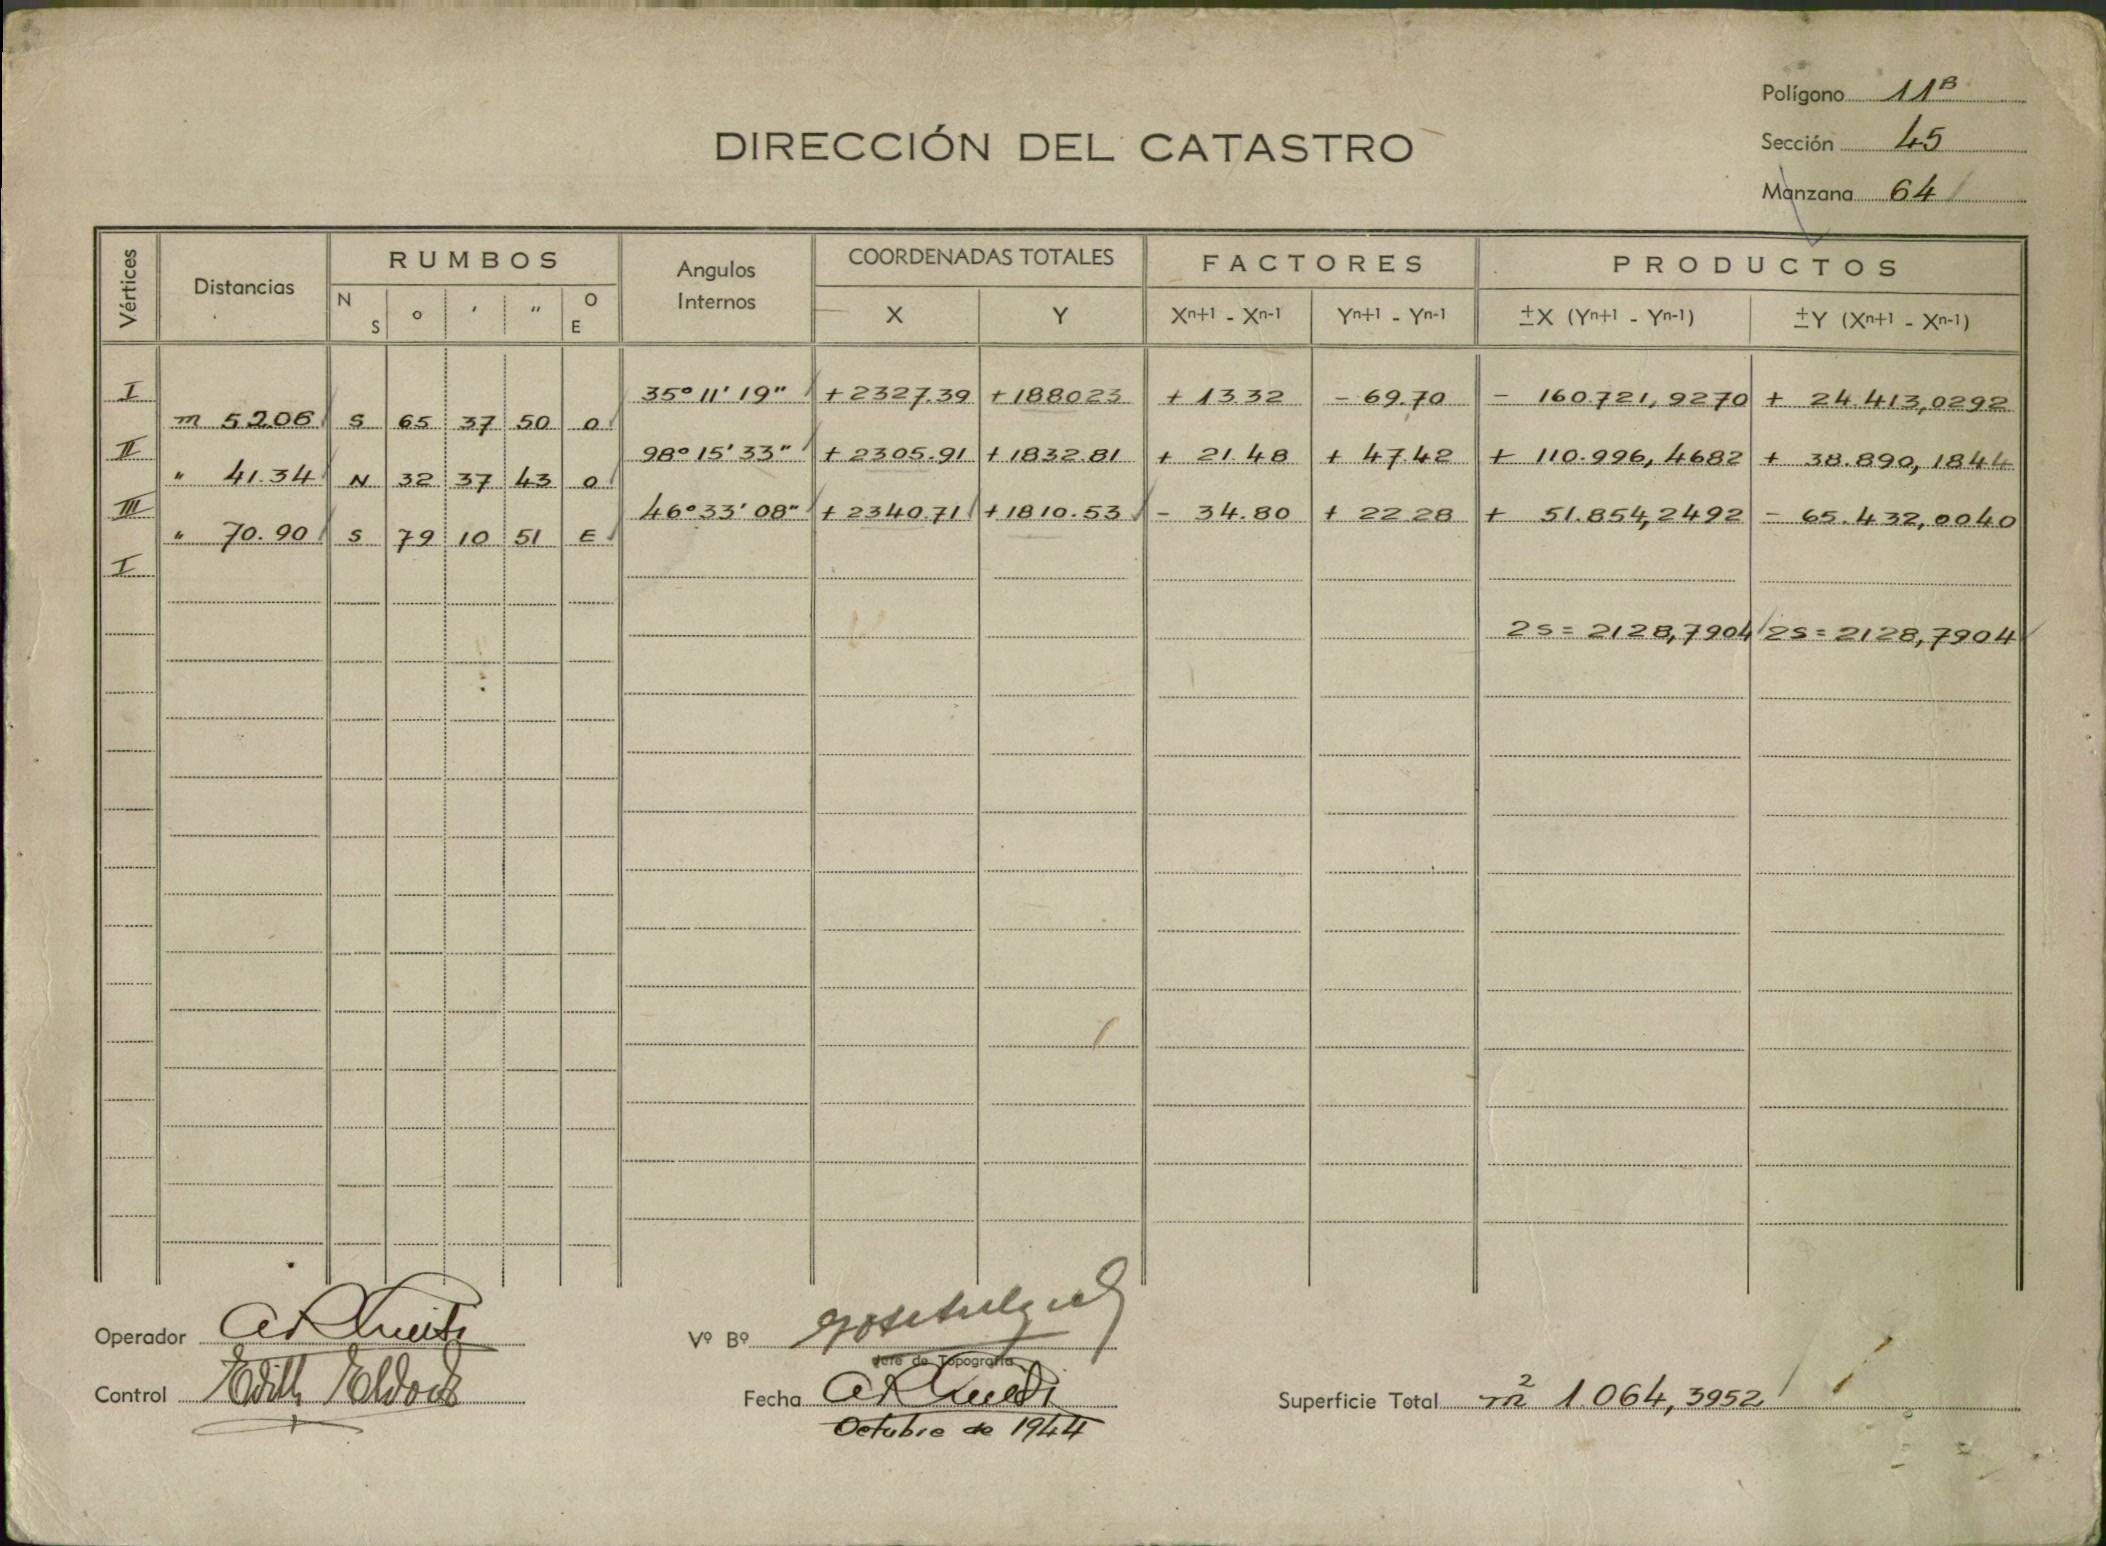 Polígono 11B
DIRECCIÓN DEL CATASTRO
Sección 45
Manzana 64
Vértices Distancias RUMBOS Angulos Internos COORDENADAS TOTALES FACTORES PRODUCTOS
N S o ' " O E X Y Xn+1 - Xn-1 Yn+1 - Yn-1 ±X (Yn+1 - Yn-1) ±Y (Xn+1 - Xn-1)
I 35° 11' 19" +2327.39 +188023 + 13.32 - 69.70 - 160.721,9270 + 24.413,0292
m 5206 S 65 37 50 O
II 98° 15' 33" + 2305.91 +1832.81 + 21.48 + 47.42 + 110.996,4682 + 38.890,1844
" 41.34 N 32 37 43 O
III 46° 33' 08" + 2340.71 +1810.53 - 34.80 + 22 28 + 51.854,2492 - 65.432,0040
" 70.90 S 79 10 51 E
I
2S = 2128,7904 2S = 2128,7904
Operador
Vº Bº
Jefe de Topografía
Control Edith
Fecha
Octubre de 1944
Superficie Total m2 1.064,3952